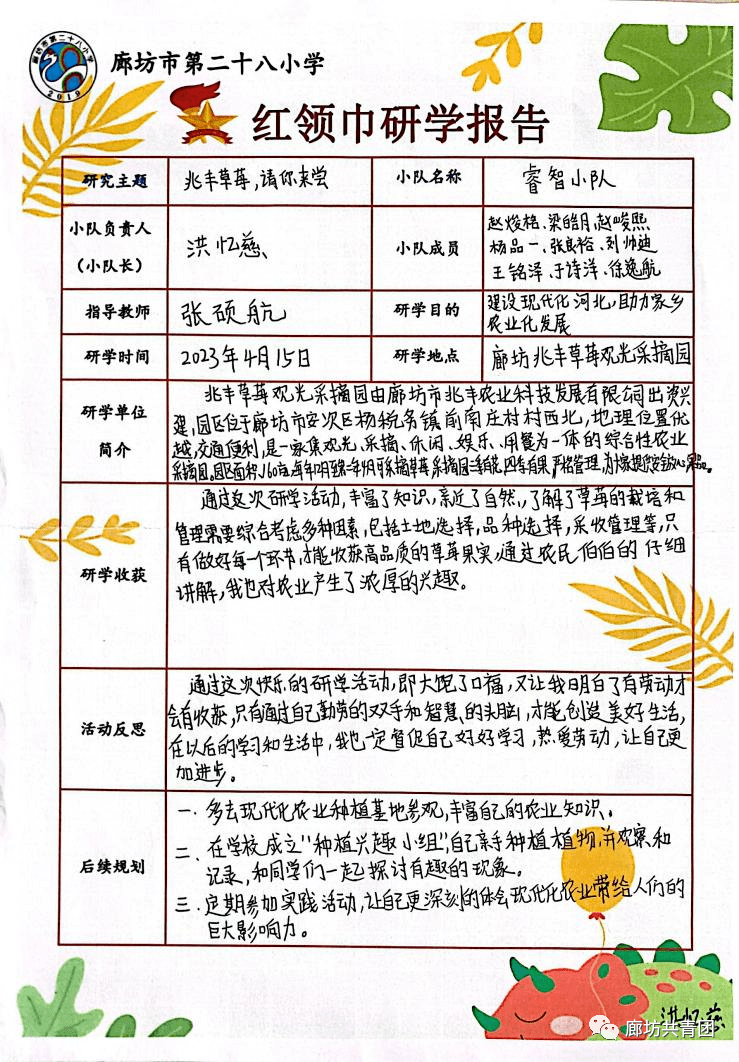 廊坊市第二十八小学
2019
红领巾研学报告
研究主题
兆丰草莓,请你来尝
小队名称
睿智小队
小队负责人
(小队长)
洪忆慈
小队成员
赵焌格、梁皓月、赵峻熙
杨品一、张良裕、刘帅迪
王铭泽、于诗洋、徐逸航
指导教师
张硕航
研学目的
建设现代化河北,助力家乡
农业化发展
研学时间
2023年4月15日
研学地点
廊坊兆丰草莓观光采摘园
研学单位
简介
兆丰草莓观光采摘园由廊坊市兆丰农业科技发展有限公司出资兴
建,园区位于廊坊市安次区杨税务镇前南庄村村西北,地理位置优
越,交通便利,是一家集观光、采摘、休闲、娱乐、用餐为一体的综合性农业
采摘园。园区面积160亩,每年
研学收获
通过这次研学活动,丰富了知识,亲近了自然,了解了草莓的栽培和
管理需要综合考虑多种因素,包括土地选择,品种选择,采收管理等,只
有做好每一个环节,才能收获高品质的草莓果实,通过农民伯伯的仔细
讲解,我也对农业产生了浓厚的兴趣。
活动反思
通过这次快乐的研学活动,即大饱了口福,又让我明白了有劳动才
会有收获,只有通过自己勤劳的双手和智慧的头脑,才能创造美好生活,
在以后的学习和生活中,我也一定督促自己好好学习,热爱劳动,让自己更
加进步。
后续规划
一.多去现代化农业种植基地参观,丰富自己的农业知识。
二、在学校成立"种植兴趣小组",自己亲手种植植物,并观察和
记录,和同学们一起探讨有趣的现象。
三.定期参加实践活动,让自己更深刻的体会现代化农业带给人们的
巨大影响力。
洪忆慈
廊坊共青团